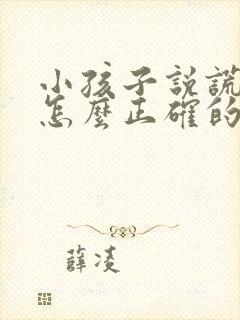 小孩子説謊
怎麼正確的
薛凌